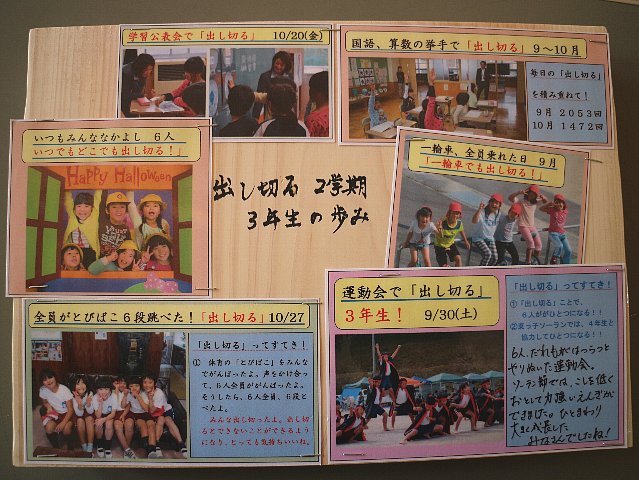 学習公表会で「出し切る」 10/20(金)
国語、算数の挙手で「出し切る」 9~10月
毎日の「出し切る」
を積み重ねて!
9月 2053回
10月 1472回
いつもみんななかよし 6人
いつでもどこでも出し切る!」
Happy Halloween
出し切る 2学期
3年生の歩み
一輪車、全員乗れた日 9月
「一輪車でも出し切る!」
全員がとびばこ6段跳べた!「出し切る」10/27
「出し切る」ってすてき!
① 体育の「とびばこ」をみんな
でがんばったよ。声をかけ合っ
て、6人全員ががんばったよ。
そうしたら、6人全員、6段と
べたよ。
みんな出し切ったよ。出し切
るとできないことができるよう
になり、とっても気持ちいいね。
運動会で「出し切る」
3年生! 9/30(土)
「出し切る」ってすてき!
①「出し切る」ことで、
6人がひとつになる!!
②東っ子ソーランでは、4年生と
協力してひとつになる!!
6人、だれもがはつらつと
やりぬいた運動会。
ソーラン節では、こしを低く
おとして力強いえんぎが
できました。ひとまわり
大きく成長した
みなさんでしたね!